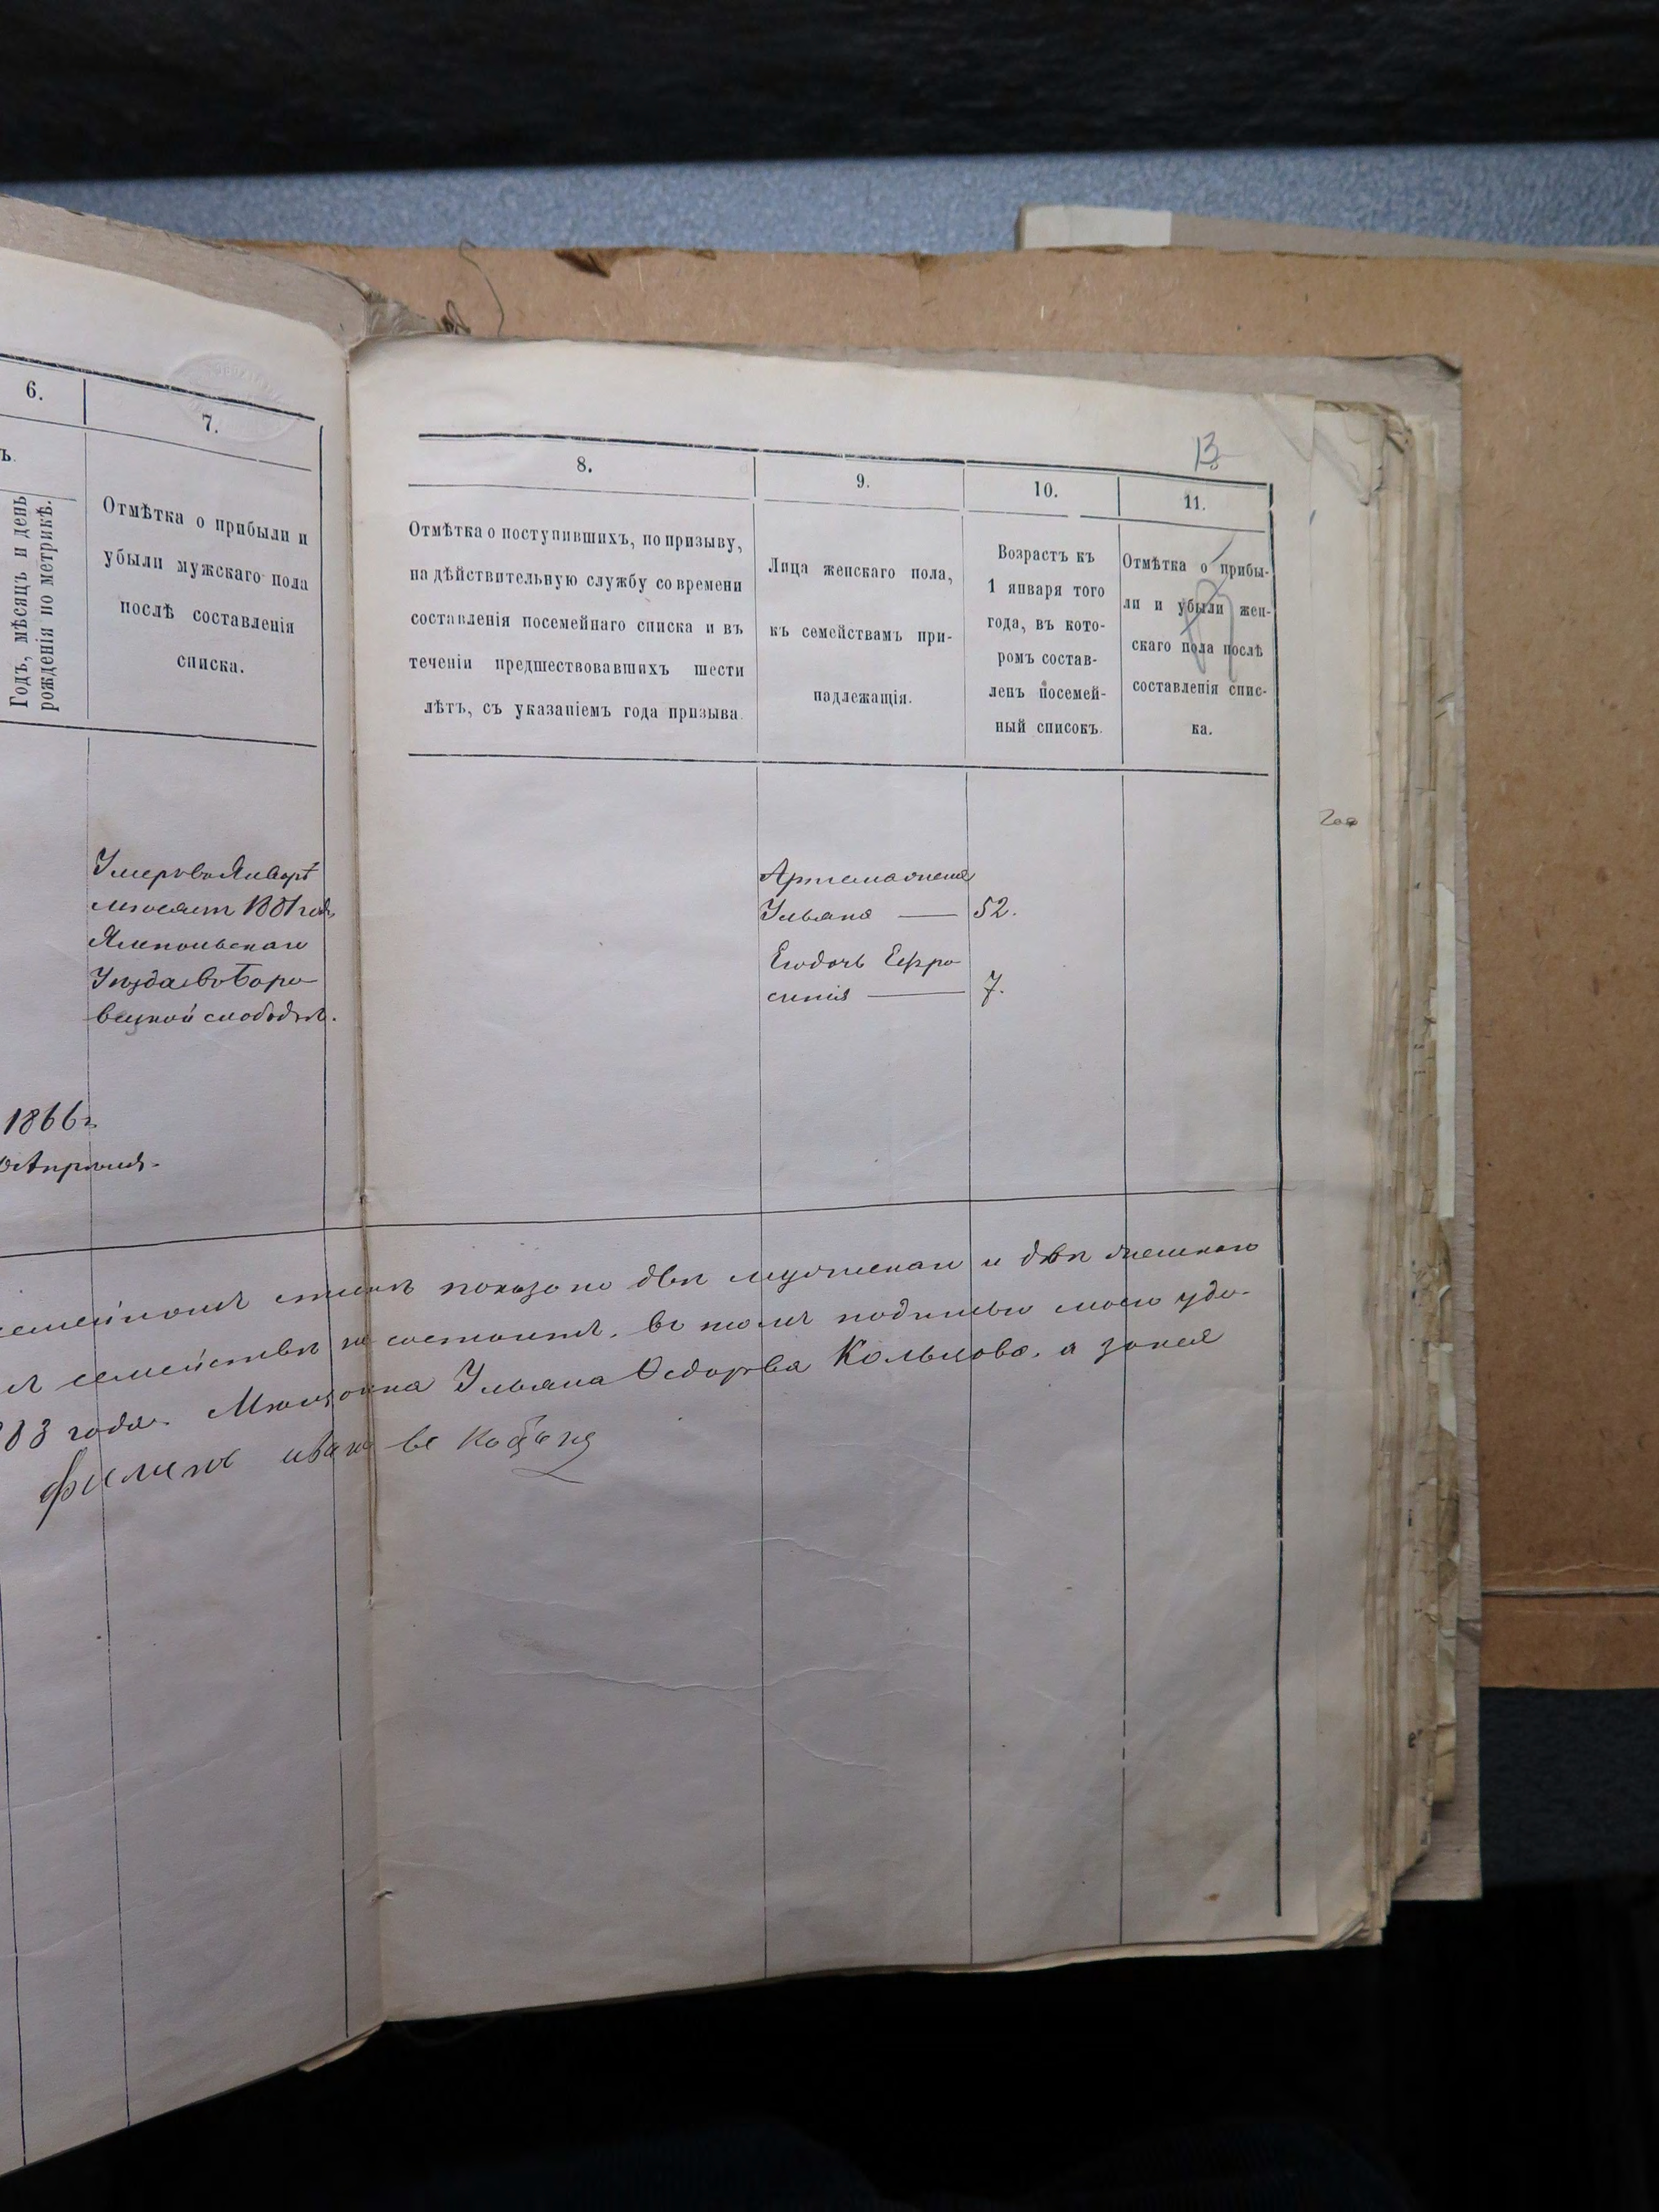 6.
ъ.
Годъ, мѣсяцъ и день
рожденія по метрикѣ.
7.
Отмѣтка о прибыли и
убыли мужскаго пола
послѣ составленія
списка.
Умеръ въ Январѣ
мѣсяцѣ 1881 года
Ямпольскаго
Уѣзда въ
слободѣ.
1866 г.
Апрѣля.
13
8.
Отмѣтка о поступившихъ, по призыву,
на дѣйствительную службу со времени
составленія посемейнаго списка и въ
теченіи предшествовавшихъ шести
лѣтъ, съ указаніемъ года призыва.
9.
Лица женскаго пола,
къ семействамъ при-
надлежащія.
10.
Возрастъ къ
1 января того
года, въ кото-
ромъ состав-
ленъ посемей-
ный списокъ.
11.
Отмѣтка о прибы-
ли и убыли жен-
скаго пола послѣ
составленія спис-
ка.
Артема жена
Ульяна — 52.
Егодочь Ефро
синія — 7.
семейномъ спискѣ показано двѣ мужескаго и двѣ женскаго
семействѣ не состоитъ. въ томъ подписью моею удо-
83 года. Мѣщанка Ульяна Федорова Кольцова, а за нея
филипъ ивано въ